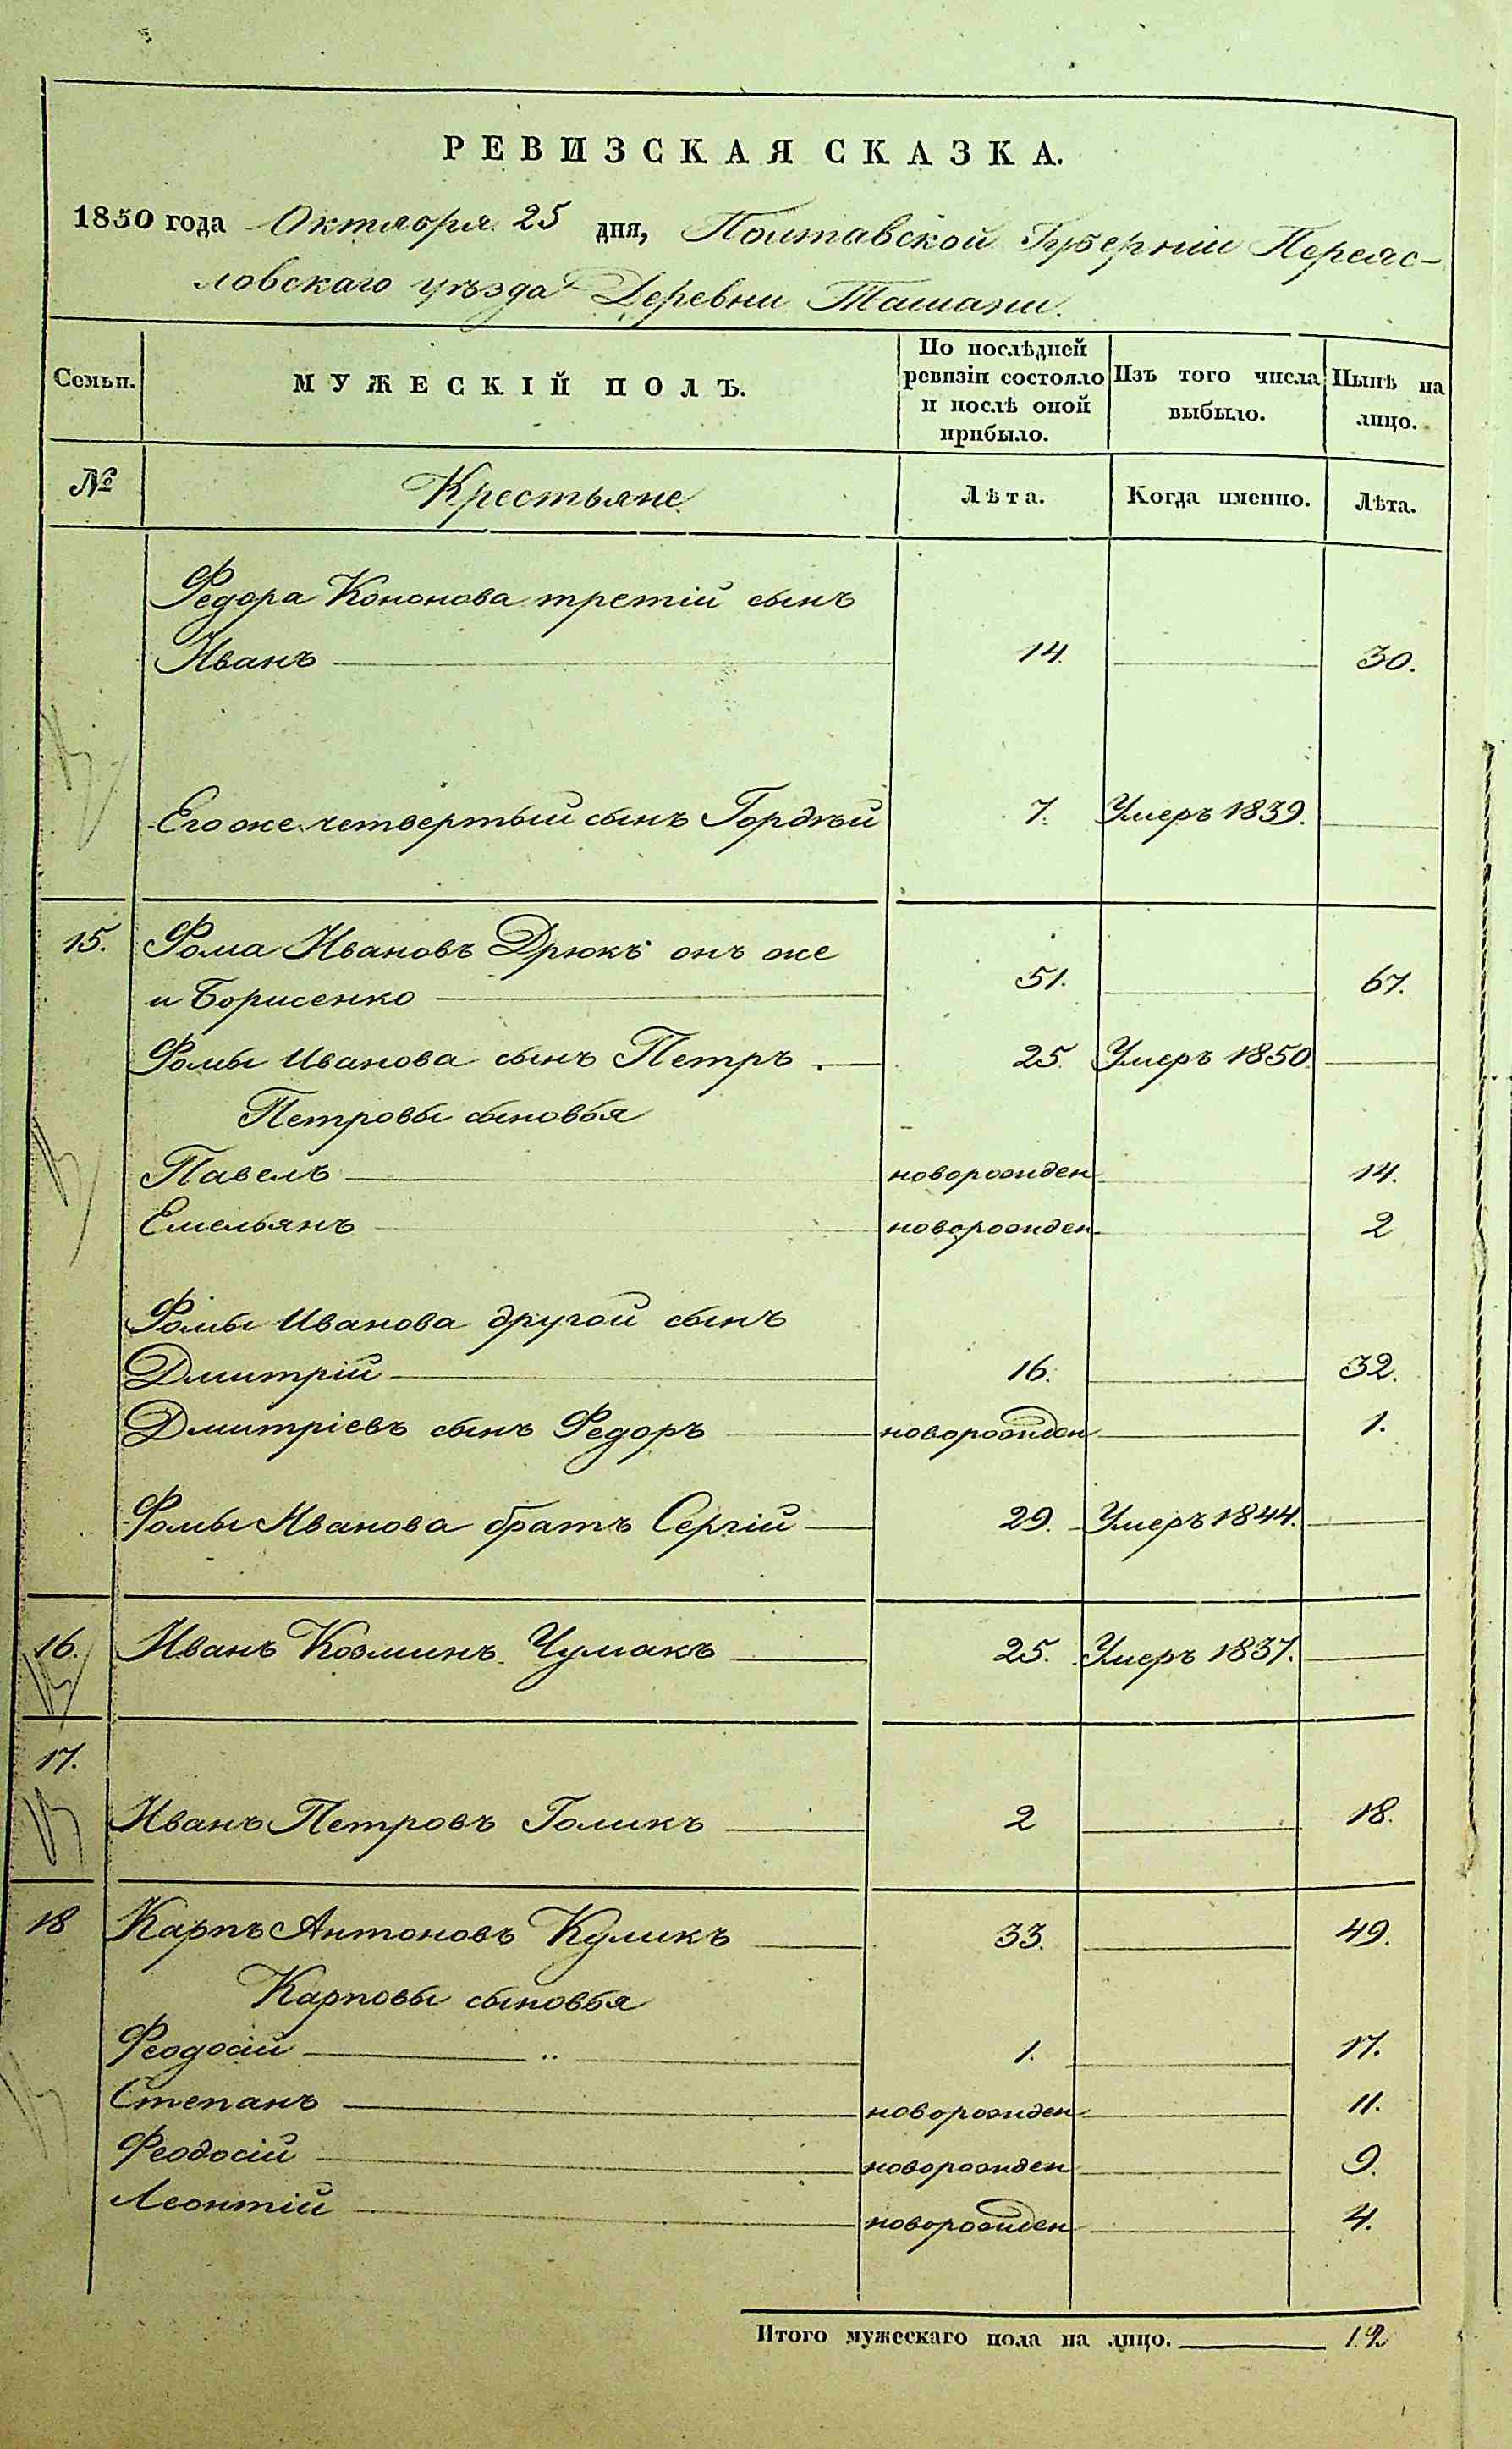 РЕВИЗСКАЯ СКАЗКА.
1850 года Октября 25 дня, Полтавской Губерніи Переяс-
ловскаго уѣзда Деревни Ташани.
Семьи.
МУЖЕСКІЙ ПОЛЪ.
По послѣдней ревизіи состояло и послѣ оной прибыло.
Изъ того числа выбыло.
Нынѣ на лицо.
№ Крестьяне Лѣта. Когда именно. Лѣта.
Федора Кононова третій сынъ
Иванъ 14. 30.
Его же четвертый сынъ Гордѣй 7. Умеръ 1839.
15. Фома Ивановъ Дрюкъ онъ же
и Борисенко 51. 67.
Фомы Иванова сынъ Петръ 25. Умеръ 1850.
Петровы сыновья
Павелъ новорожден 14.
Емельянъ новорожден 2
Фомы Иванова другой сынъ
Дмитрій 16. 32.
Дмитріевъ сынъ Федоръ новорожден 1.
Фомы Иванова братъ Сергій 29. Умеръ 1844.
16. Иванъ Козминъ Чумакъ 25. Умеръ 1837.
17.
Иванъ Петровъ Голикъ 2 18.
18 Карпъ Антоновъ Куликъ 33. 49.
Карповы сыновья
Феодосій 1. 17.
Степанъ новорожден 11.
Феодосій новорожден 9.
Леонтій новорожден 4.
Итого мужескаго пола на лицо. 12